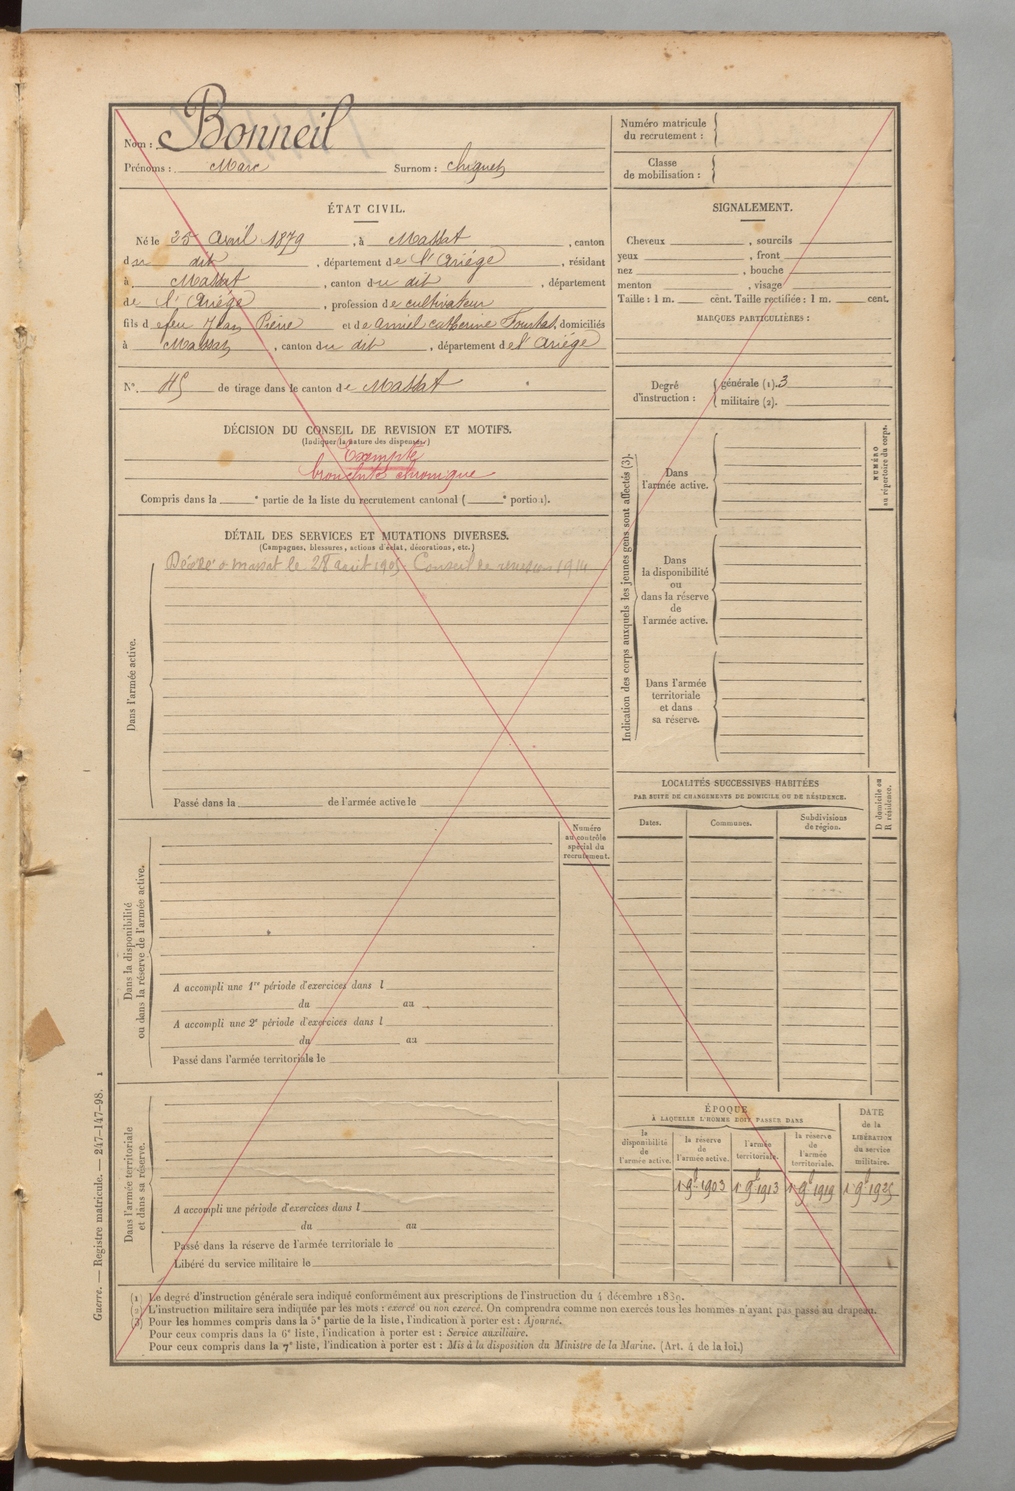 Nom : Bonneil
Prénoms : Marc Surnom : chiquet
ÉTAT CIVIL.
Né le 25 Avril 1879, à Massat, canton
du dit, département de l'Ariége, résidant
à Massat, canton du dit, département
de l'Ariége, profession de cultivateur
fils de feu Jean Pierre et de Amiel catherine domiciliés
à Massat, canton du dit, département de l'Ariége
N° 45 de tirage dans le canton de Massat
DÉCISION DU CONSEIL DE REVISION ET MOTIFS.
(Indiquer la nature des dispenses)
Exempté
bronchite chronique
Compris dans la ° partie de la liste du recrutement cantonal ( ° portion).
DÉTAIL DES SERVICES ET MUTATIONS DIVERSES.
(Campagnes, blessures, actions d'éclat, décorations, etc.)
Dans l'armée active.
Décédé à Massat le 28 août 1905 Conseil de revision 1914
Passé dans la de l'armée active le
Numéro
au contrôle
spécial du
recrutement.
Dans la disponibilité
ou dans la réserve de l'armée active.
A accompli une 1re période d'exercices dans l
du au
A accompli une 2e période d'exercices dans l
du au
Passé dans l'armée territoriale le
Dans l'armée territoriale
et dans sa réserve.
A accompli une période d'exercices dans l
du au
Passé dans la réserve de l'armée territoriale le
Libéré du service militaire le
Numéro matricule
du recrutement :
Classe
de mobilisation :
SIGNALEMENT.
Cheveux , sourcils
yeux , front
nez , bouche
menton , visage
Taille : 1 m. cent. Taille rectifiée : 1 m. cent.
MARQUES PARTICULIÈRES :
Degré
d'instruction :
générale (1). 3
militaire (2).
Indication des corps auxquels les jeunes gens sont affectés (3).
Dans
l'armée active.
Dans
la disponibilité
ou
dans la réserve
de
l'armée active.
Dans l'armée
territoriale
et dans
sa réserve.
NUMÉRO
au répertoire du corps.
LOCALITÉS SUCCESSIVES HABITÉES
PAR SUITE DE CHANGEMENTS DE DOMICILE OU DE RÉSIDENCE.
Dates.
Communes.
Subdivisions
de région.
D domicile ou
R résidence.
ÉPOQUE
À LAQUELLE L'HOMME DOIT PASSER DANS
la
disponibilité
de
l'armée active.
la réserve
de
l'armée active.
l'armée
territoriale.
la réserve
de
l'armée
territoriale.
DATE
de la
LIBÉRATION
du service
militaire.
1 9b 1903 1 9b 1913 1 9b 1919 1 9b 1925
(1) Le degré d'instruction générale sera indiqué conformément aux prescriptions de l'instruction du 4 décembre 1889.
(2) L'instruction militaire sera indiquée par les mots : exercé ou non exercé. On comprendra comme non exercés tous les hommes n'ayant pas passé au drapeau.
(3) Pour les hommes compris dans la 5e partie de la liste, l'indication à porter est : Ajourné.
Pour ceux compris dans la 6e liste, l'indication à porter est : Service auxiliaire.
Pour ceux compris dans la 7e liste, l'indication à porter est : Mis à la disposition du Ministre de la Marine. (Art. 4 de la loi.)
Guerre. — Registre matricule. — 247-147-98. 1